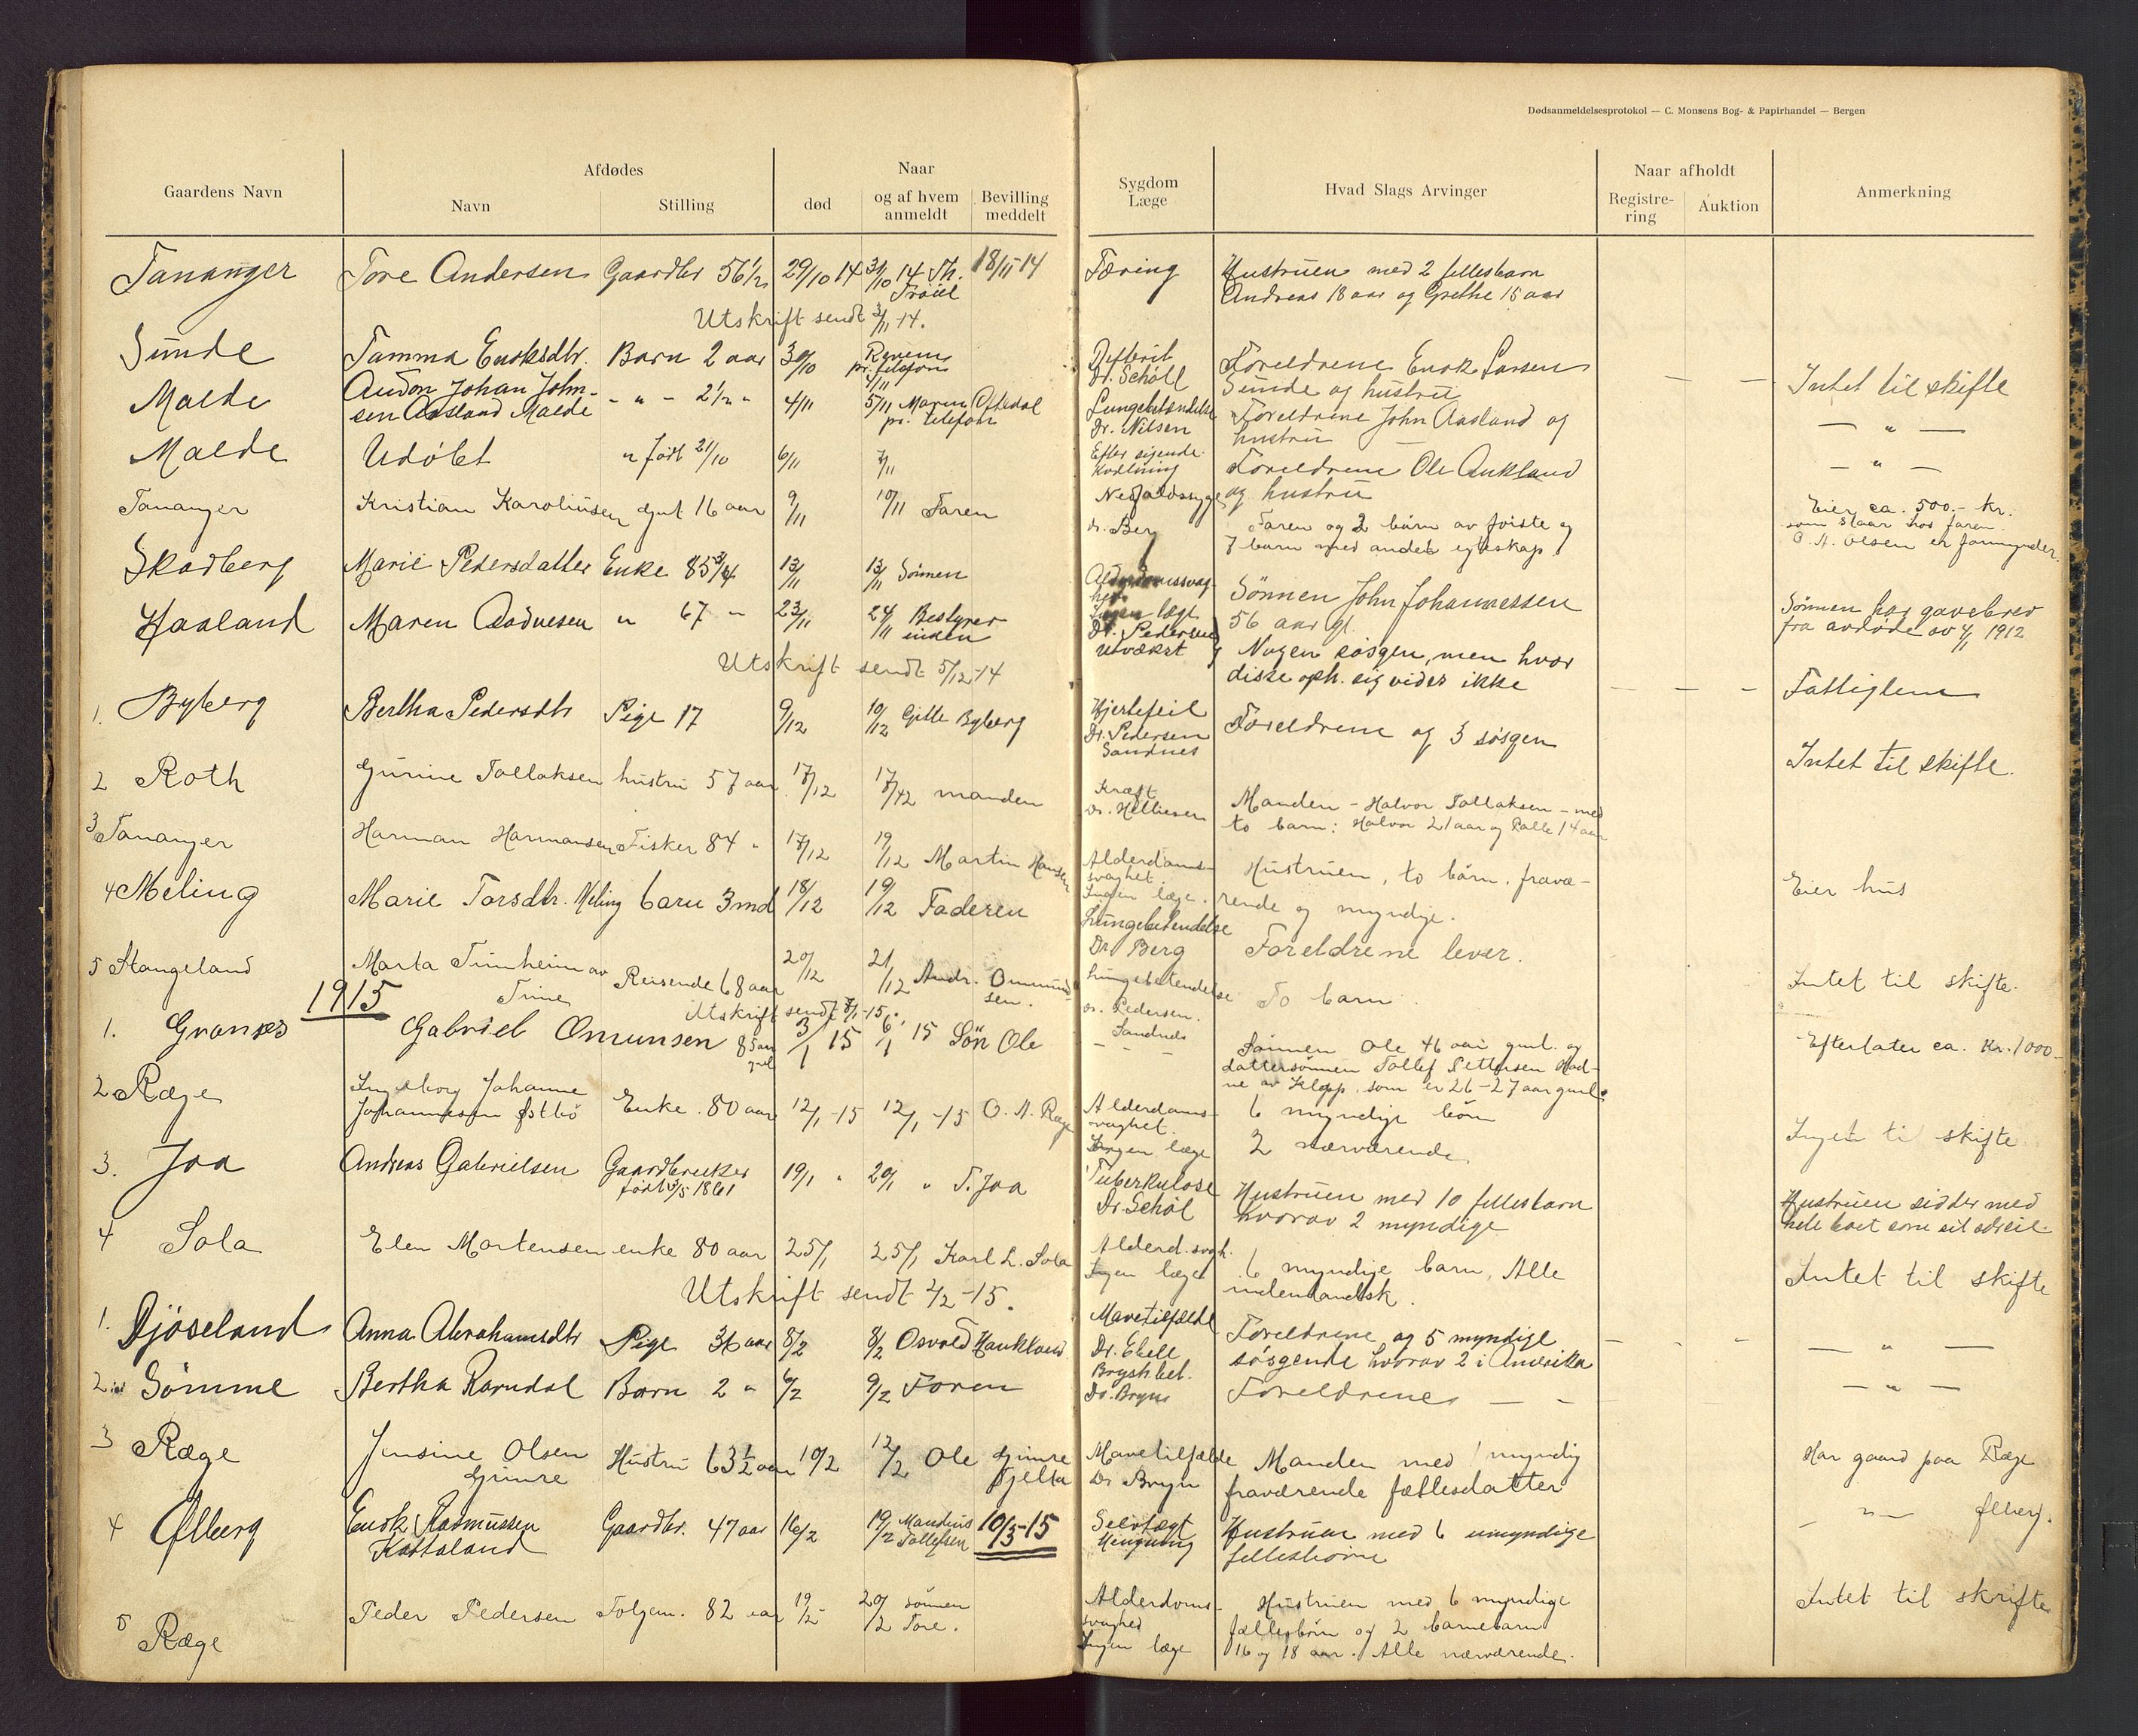 Dødsanmeldelsesprotokol — C. Monsens Bog- & Papirhandel — Bergen
Gaardens Navn
Afdødes
Navn
Stilling
Naar
død
og af hvem anmeldt
Bevilling meddelt
Sygdom
Læge
Hvad Slags Arvinger
Naar afholdt
Registre-
ring
Auktion
Anmerkning
Tananger Tore Andersen Gaardbr 56½ 29/10 14 31/10 14 Th. 18/11-14 Tæring Hustruen med 2 fellesbarn
Andreas 18 aar og Grethe 15 aar
Utskrift sendt 3/11-14.
Sunde Tamma Enoksdtr. Barn 2 aar 30/10 pr. telefon Difterit Foreldrene Enok Larsen
4/11 Dr. Schöll Sunde og hustru — — Intet til skifte
Malde Audon Johan John- - " - 2½ " 4/11 5/11 Maren Oftedal Lungebetændelse Foreldrene John Aasland og
sen Aasland Malde pr. telefon Dr. Nilsen hustru — " —
Malde Udöbt " født 21/10 6/11 7/11 Efter sigende Foreldrene Ole Aukland — " —
Kvælning og hustru
Tananger Kristian Karoliusen gut 16 aar 9/11 10/11 Faren Nedfaldssyge Faren og 2 børn av første og Eier ca. 500.- Kr.
dr. Berg 7 barn med andet egteskap. som staar hos faren.
O. N. Olsen er formynder
Skadberg Marie Pedersdatter Enke 85¾ 13/11 13/11 Sönnen Alderdomssvag-
het Sönnen John Johannessen Sönnen har gavebrev
Ingen læge 56 aar gl. fra avdøde av 4/11 1912
Haaland Maren Aadnesen " 67 " 23/11 24/11 Bestyrer Dr. Pedersen Nogen søsgen, men hvor
Utvækst disse oph. sig vides ikke — — - Fattiglem
Utskrift sendt 5/12-14
1. Byberg Bertha Pedersdtr Pige 17 9/12 10/12 Gitte Byberg Hjertefeil Foreldrene og 3 søsgen Intet til skifte.
Dr. Pedersen
Sandnes
2 Roth Gurine Tollaksen hustru 57 aar 17/12 17/12 manden Kræft Manden - Halvor Tollaksen - med
Dr. Helliesen to barn: Halvor 21 aar og Palle 14 aar
3 Tananger Harman Harmansen Fisker 84 " 17/12 19/12 Martin Hansen Alderdoms- Hustruen, to børn, fravæ- Eier hus
svaghet rende og myndige.
Ingen læge.
4 Meling Marie Torsdtr. Meling barn 3 md 18/12 19/12 Faderen Lungebetendelse Foreldrene lever.
Dr Berg
5 Stangeland Marta Trinheim av Reisende 68 aar 20/12 21/12 Andr. Ommund- Lungebetendelse To barn. Intet til skifte.
Time sen. Dr. Pedersen.
Sandnes
1915 Utskrift sendt 7/1-15.
1. Grannes Gabriel Omunsen 85 aar gml 3/1 15 6/1 15 Sön Ole — — — Sönnen Ole 46 aar gml. og Efterlater ca. Kr. 1000.-
dattersønnen Tollef Pettersen Aad-
ne av Klepp som er 26-27 aar gml.
2 Ræge Ingeborg Johanne Enke 80 aar 12/1-15 12/1-15 O. N. Ræge Alderdoms- 6 myndige börn Inget til skifte
Johannesen Østbö svaghet. 2 nærværende
Ingen læge
3. Joa Andreas Gabrielsen Gaardbruker 19/1 " 20/1 " T. Joa Tuberkulose Hustruen med 10 fellesbarn Hustruen sidder med
født 3/5 1861 Dr. Schöl hvorav 2 myndige hele boet som sit
4 Sola Elen Mortensen enke 80 aar 25/1 25/1 Karl L. Sola Alderd. svagh. 6 myndige barn, Alle Intet til skifte
Ingen læge indenlandsk.
Utskrift sendt 4/2-15.
1. Djöseland Anna Abrahamsdtr Pige 36 aar 8/2 8/2 Osvald Haukland Mavetilfælde Foreldrene og 5 myndige — — — — " —
Dr. Ebell søsgende hvorav 2 i Amerika
2 Sömme Bertha Ramdal Barn 2 " 6/2 9/2 Faren Brysthet. Foreldrene — - — " —
Dr. Bryn
3 Ræge Jensine Olsen Hustru 63½ aar 10/2 12/2 Ole Gimre Mavetilfælde Manden med 1 myndig Har gaard paa Ræge
Gimre Tjelta Dr Bryn fraværende fællesdatter
4 Ølberg Enok Rasmussen Gaardbr. 47 aar 16/2 19/2 Mandius 10/3-15 Selvtægt Hustruen med 6 umyndige - " - Ølberg.
Kattaland Tollefsen Hengning fellesbörn
5 Ræge Peder Pedersen Folgem. 82 aar 19/2 20/2 sönnen Alderdoms- Hustruen med 6 myndige Intet til skrifte
Tore. svaghed fællesbörn og 2 barnebarn
Ingen læge 16 og 18 aar. Alle nærværende.